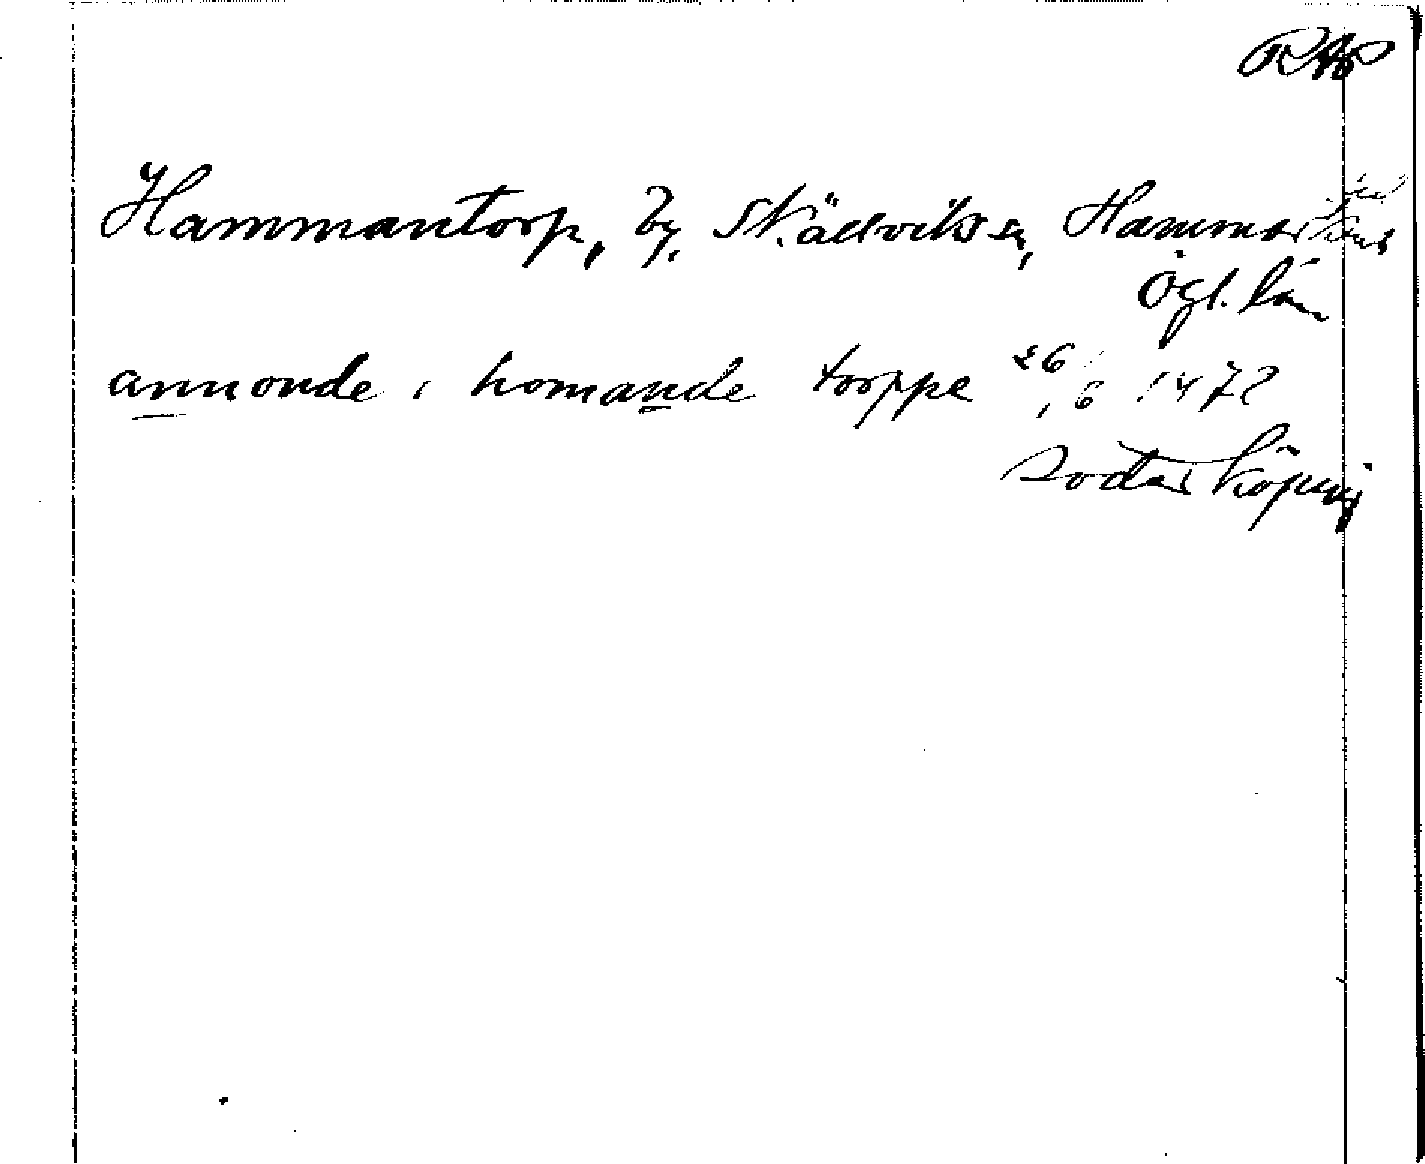 RAP
Hammantorp, by, Skällviks sn, Hammarkinds hd
Ögl. län
amnonde i homande torppe 26/6 1472
Söderköping